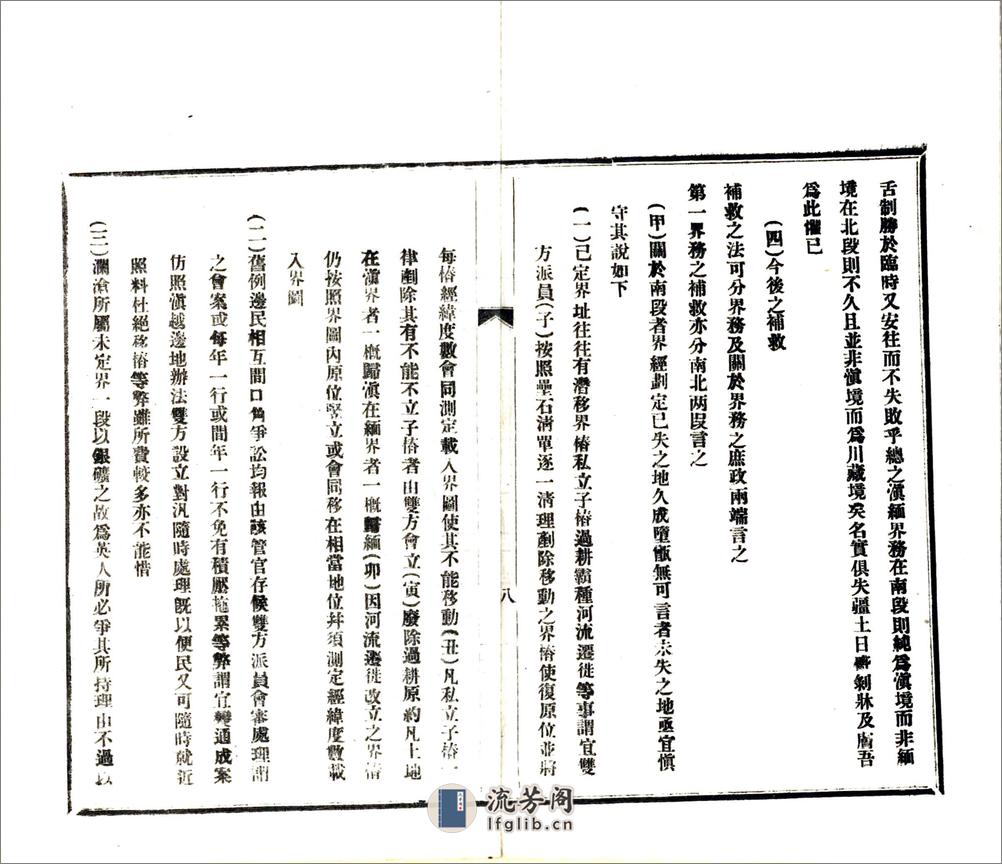 舌制勝於臨時又安往而不失敗乎總之滇緬界務在南段則純爲滇境而非緬
境在北段則不久且並非滇境而爲川藏境矣名實俱失疆土日蹙剝牀及膚吾
爲此懼已
(四)今後之補救
補救之法可分界務及關於界務之庶政兩端言之
第一界務之補救亦分南北两段言之
(甲)關於南段者界經劃定已失之地久成墮甑無可言者未失之地亟宜愼
守其說如下
(一)已定界址往往有潛移界樁私立子樁過耕霸種河流遷徙等事謂宜雙
方派員(子)按照壘石淸單逐一淸理剷除移動之界樁使復原位並將
八
每樁經緯度數會同測定載入界圖使其不能移動(丑)凡私立子樁一
律剷除其有不能不立子樁者由雙方會立(寅)廢除過耕原約凡土地
在滇界者一槪歸滇在緬界者一槪歸緬(卯)因河流遷徙改立之界樁
仍按照界圖內原位竪立或會同移在相當地位幷須測定經緯度數載
入界圖
(二)舊例邊民相互間口角爭訟均報由該管官存候雙方派員會審處理謂
之會案或每年一行或間年一行不免有積壓拖累等弊謂宜變通成案
仿照滇越邊地辦法雙方設立對汛隨時處理旣以便民又可隨時就近
照料杜絕移樁等弊雖所費較多亦不能惜
(三)瀾滄所屬未定界一段以銀礦之故爲英人所必爭其所持理由不過以
流芳阁
lfglib.cn